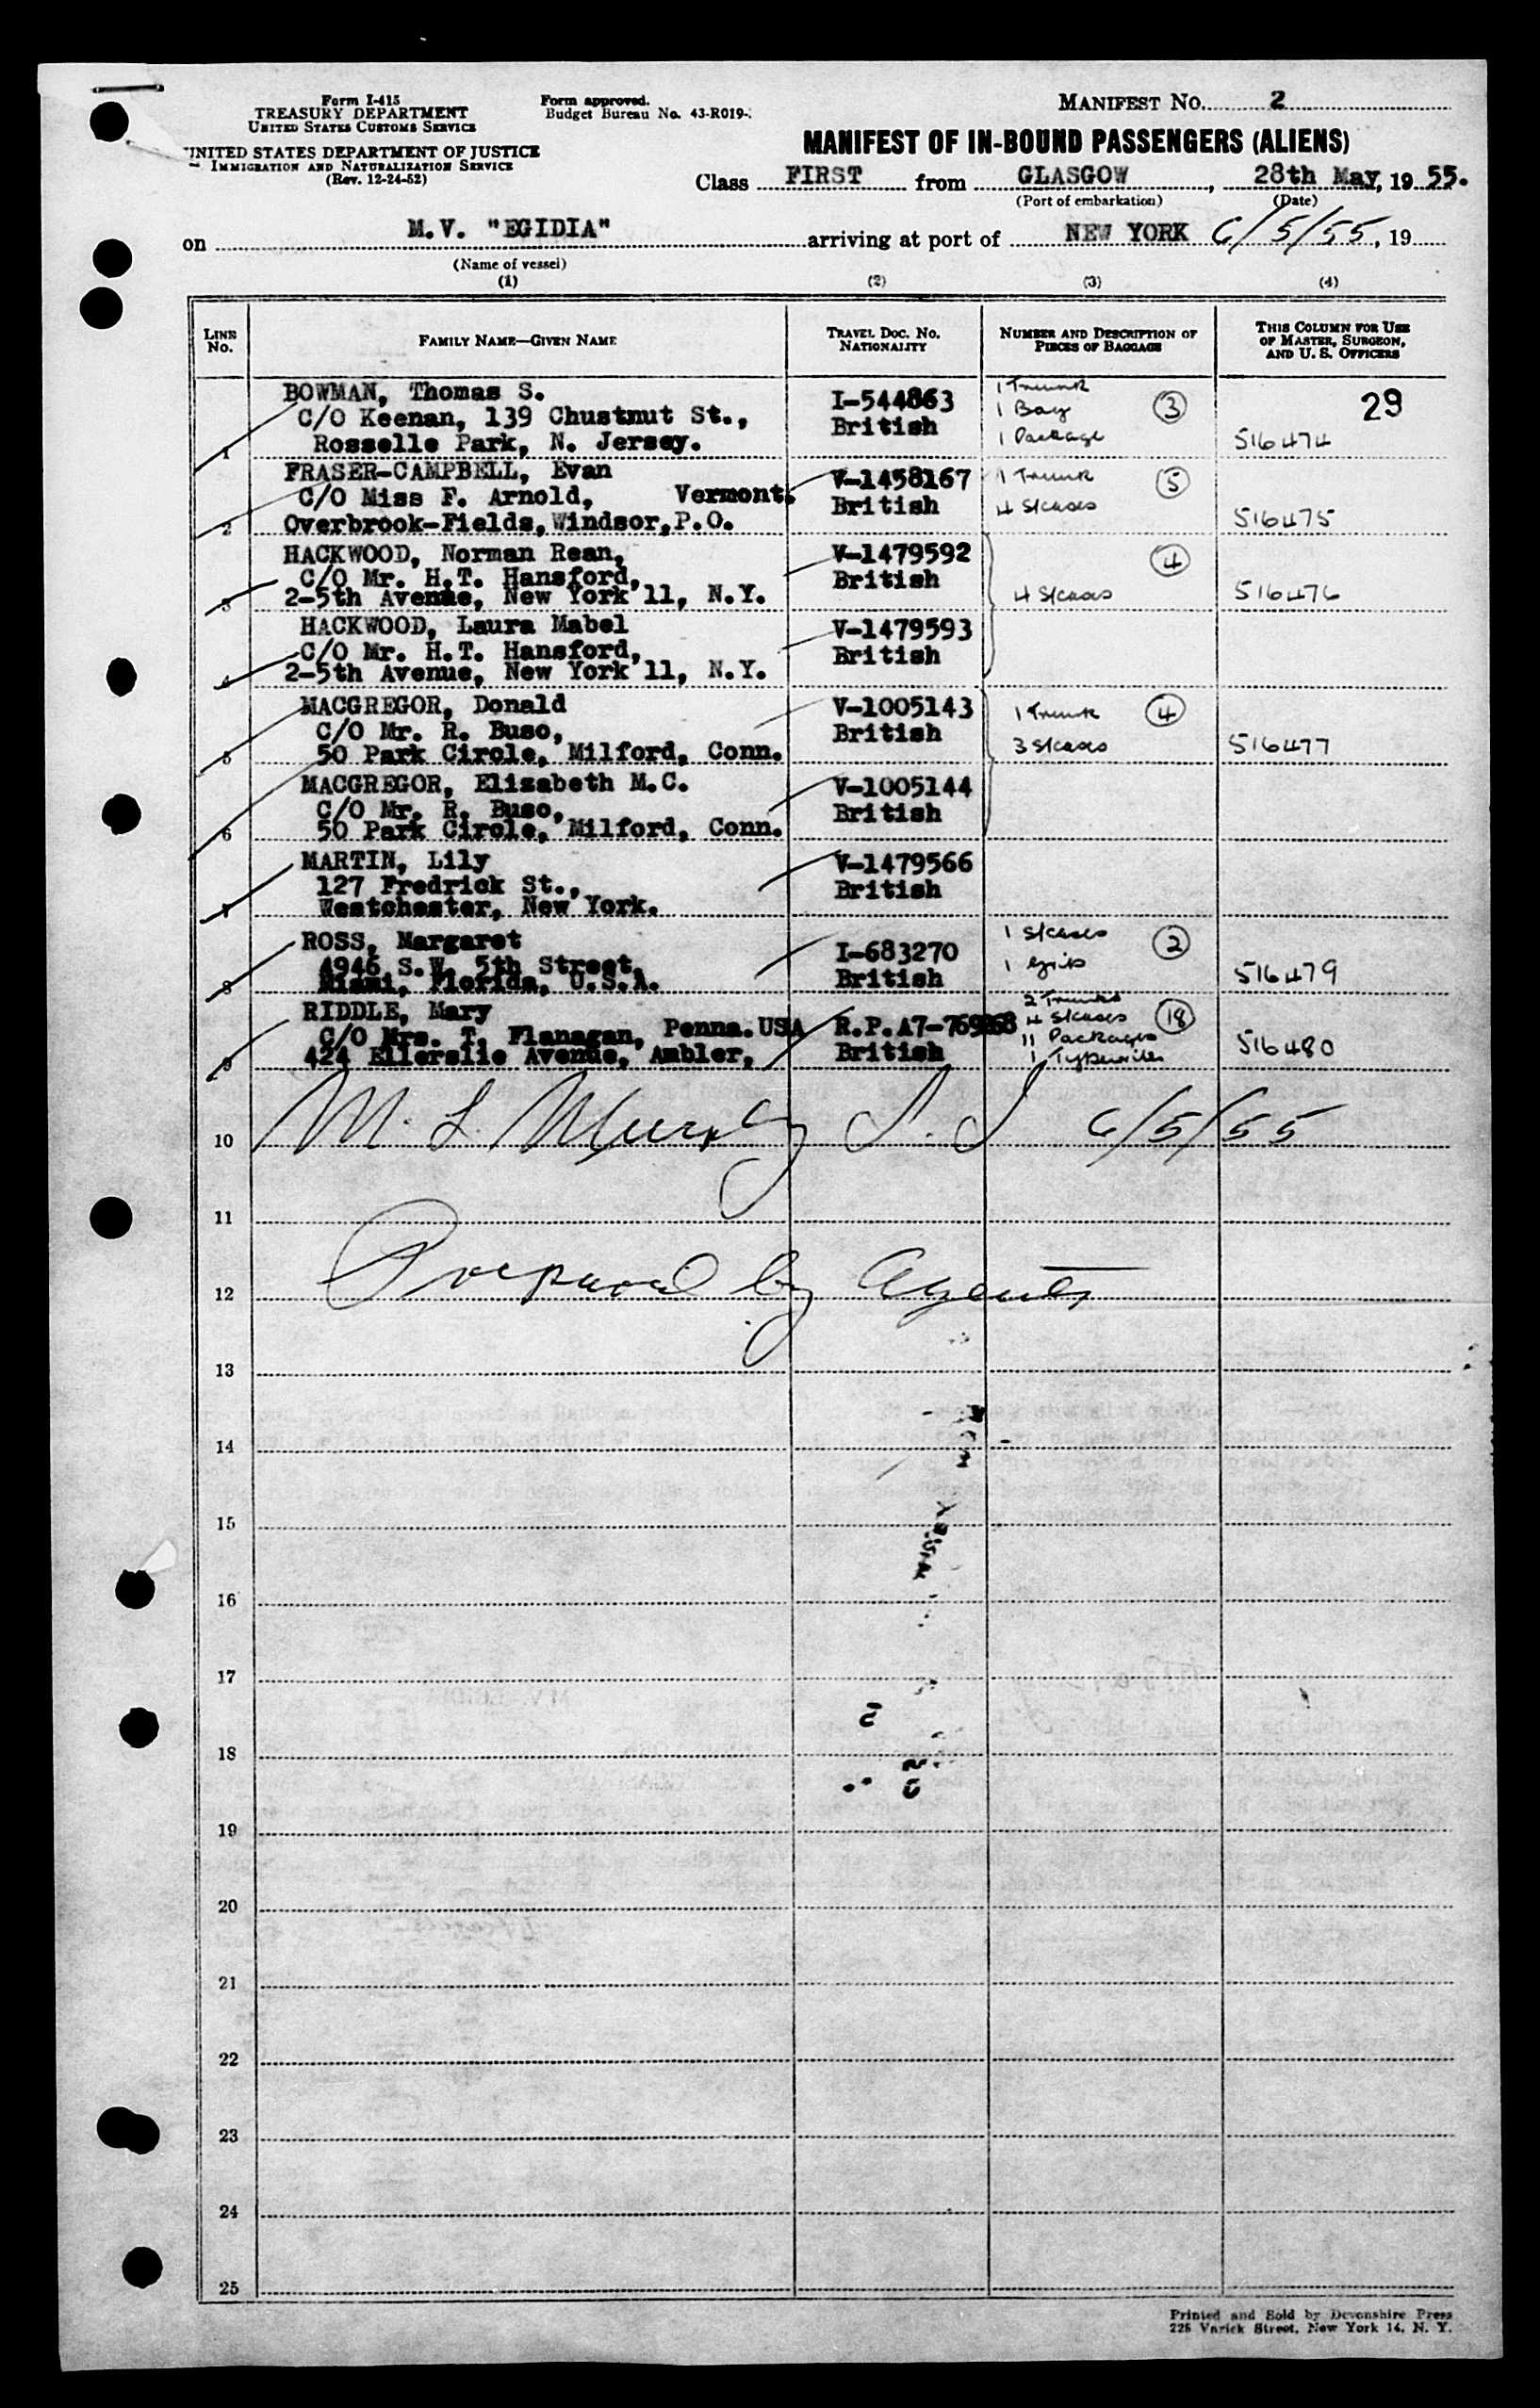 Form I-415
TREASURY DEPARTMENT
UNITED STATES CUSTOMS SERVICE
UNITED STATES DEPARTMENT OF JUSTICE
IMMIGRATION AND NATURALIZATION SERVICE
(Rev. 12-24-52)
Form approved.
Budget Bureau No. 43-R019-
MANIFEST No. 2
MANIFEST OF IN-BOUND PASSENGERS (ALIENS)
Class FIRST from GLASGOW, 28th May, 1955.
(Port of embarkation) (Date)
on M.V. "EGIDIA" arriving at port of NEW YORK 6/5/55, 19
(Name of vessel)
(1) (2) (3) (4)
LINE No. FAMILY NAME—GIVEN NAME TRAVEL DOC. NO. NATIONALITY NUMBER AND DESCRIPTION OF PIECES OF BAGGAGE THIS COLUMN FOR USE OF MASTER, SURGEON, AND U. S. OFFICERS
BOWMAN, Thomas S. I-544863 1 Trunk 29
C/O Keenan, 139 Chustnut St., British 1 Bag 3
1 Rosselle Park, N. Jersey. 1 Package 516474
FRASER-CAMPBELL, Evan V-1458167 1 Trunk 5
C/O Miss F. Arnold, Vermont. British 4 S/cases
2 Overbrook-Fields, Windsor, P.O. 516475
HACKWOOD, Norman Rean, V-1479592 4
C/O Mr. H.T. Hansford, British
3 2-5th Avenue, New York 11, N.Y. 4 S/cases 516476
HACKWOOD, Laura Mabel V-1479593
C/O Mr. H.T. Hansford, British
4 2-5th Avenue, New York 11, N.Y.
MACGREGOR, Donald V-1005143 1 Trunk 4
C/O Mr. R. Buso, British
5 50 Park Circle, Milford, Conn. 3 S/cases 516477
MACGREGOR, Elizabeth M.C. V-1005144
C/O Mr. R. Buso, British
6 50 Park Circle, Milford, Conn.
MARTIN, Lily V-1479566
127 Fredrick St., British
7 Westchester, New York.
ROSS, Margaret I-683270 1 S/cases 2
4946 S.W. 5th Street, British 1
8 Miami, Florida, U.S.A. 516479
RIDDLE, Mary 2 Trunks
C/O Mrs. T. Flanagan, Penna. USA R.P. A7-769268 4 S/cases 18
9 424 Ellerslie Avenue, Ambler, British 11 Packages 516480
1 Typewriter
10 M. L. Murphy 6/5/55
11
12 Prepared by Agents
13
14
15
16
17
18
19
20
21
22
23
24
25
Printed and Sold by Devonshire Press
225 Varick Street, New York 14, N. Y.